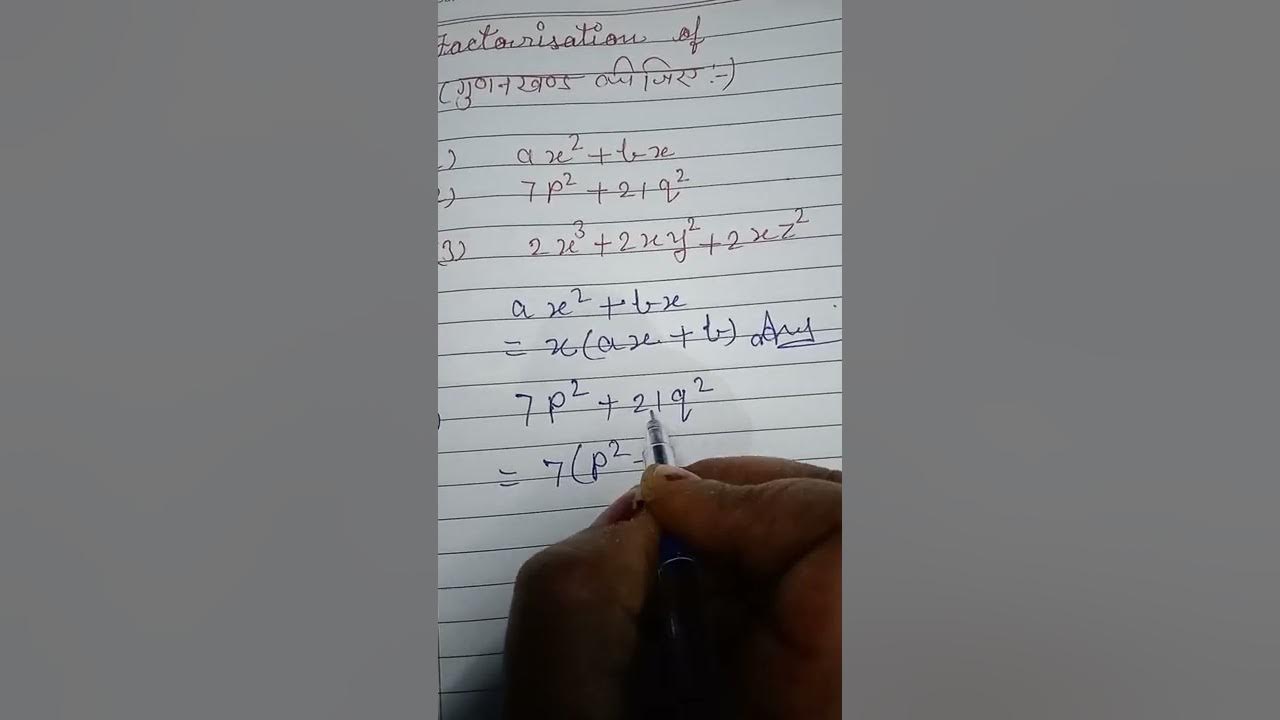 Factorisation of
(गुणनखण्ड कीजिए:-)
ax² + bx
7p² + 21q²
(3) 2x³ + 2xy² + 2xz²
ax² + bx
= x(ax + b) Ans
7p² + 21q²
= 7(p² -